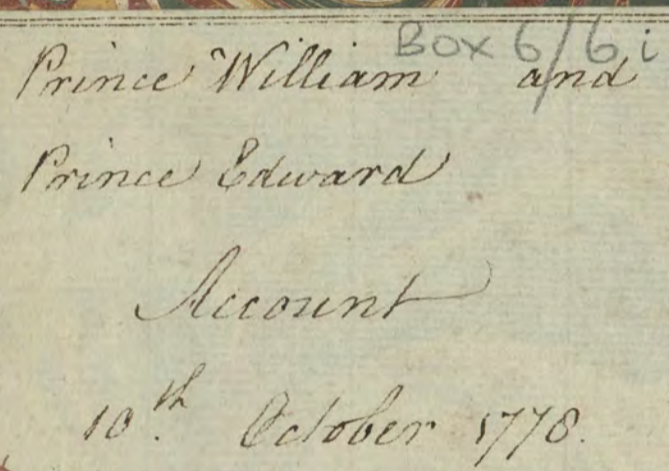 Box 6/6i
Prince William and
Prince Edward
Account
10th. October 1778.